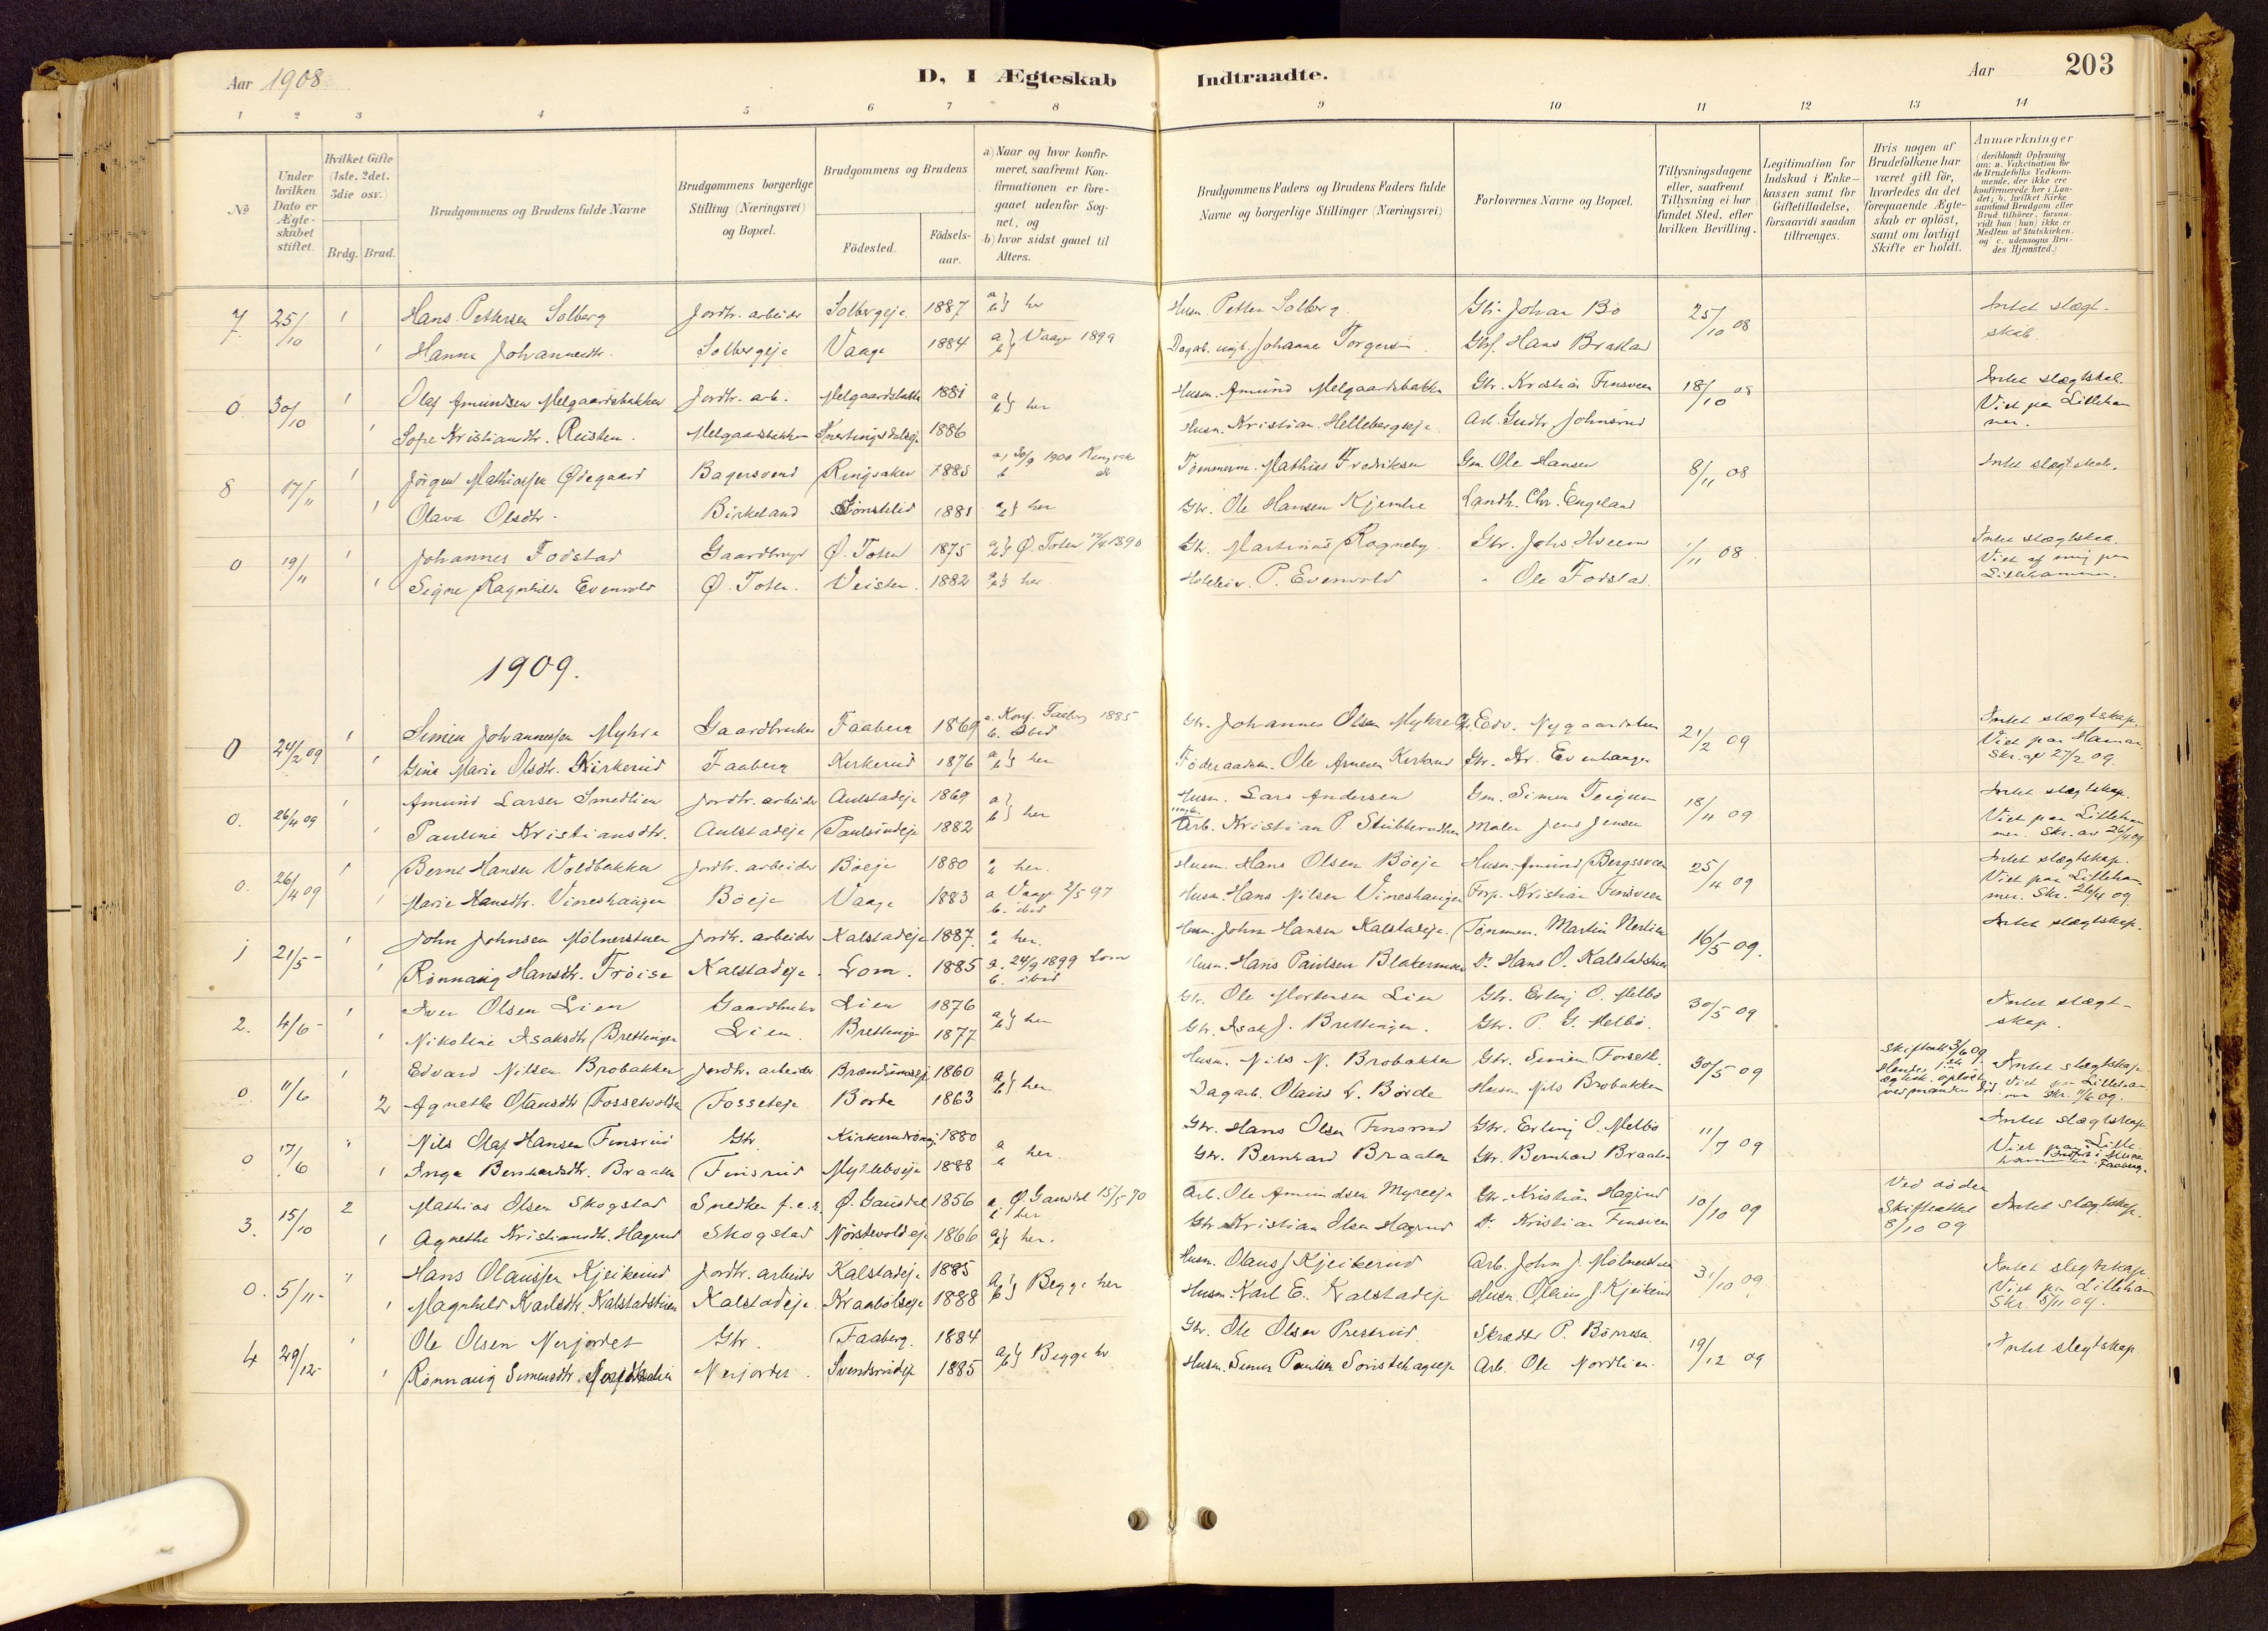 Aar 1908
D, I Ægteskab Indtraadte.
Aar 203
1 2 3 4 5 6 7 8 9 10 11 12 13 14
No
Under hvilken Dato er Ægteskabet stiftet.
Hvilket Gifte (1ste, 2det, 3die osv.)
Brdg. Brud.
Brudgommens og Brudens fulde Navne
Brudgommens borgerlige Stilling (Næringsvei) og Bopæl.
Brudgommens og Brudens
Födested. Födselsaar.
a) Naar og hvor konfirmeret, saafremt Konfirmationen er foregaaet udenfor Sognet, og
b) hvor sidst gaaet til Alters.
Brudgommens Faders og Brudens Faders fulde Navne og borgerlige Stillinger (Næringsvei)
Forlovernes Navne og Bopæl.
Tillysningsdagene eller, saafremt Tillysning ei har fundet Sted, efter hvilken Bevilling.
Legitimation for Indskud i Enkekassen samt for Giftetilladelse, forsaavidt saadan tiltrænges.
Hvis nogen af Brudefolkene har været gift för, hvorledes da det foregaaende Ægteskab er oplöst, samt om lovligt Skifte er holdt.
Anmærkninger (deriblandt Oplysning om: a. Vakcination for de Brudefolks Vedkommende, der ikke ere konfirmerede her i Landet; b. hvilket Kirkesamfund Brudgom eller Brud tilhörer, forsaavidt han (hun) ikke er Medlem af Statskirken, og c. udensogns Brudes Hjemsted.)
7 25/10 1 Hans Pettersen Solberg Jordbr. arbeider Solbergeje 1887 a b her Husm. Petter Solberg Gbr. Johan Bö 25/10 08 Intet slægtskab
1 Hanna Johannesdtr. Solbergeje Vaage 1884 a b Vaage 1899 Dagarb. Johannes Torgersen Hans Brastad
0 30/10 1 Olaf Amundsen Melgaardsbakken Jordbr. arb. Melgaardsbakk 1881 a b her Husm. Amund Melgaardsbakken Gbr. Kristian Finsveen 18/10 08 Intet slægtskab. Viet paa Lillehammer.
1 Sofie Kristiansdtr. Reisten. Melgaardsbakken 1886 Husm. Kristian Hellebergseje Arb. Gudbr. Johnsrud
8 17/11 1 Jörgen Mathiassen Ödegaard Bagersvend Ringsaker 1885 a, 30/9 1900 Tömmerm. Mathias Fredriksen Gm. Ole Hansen 8/11 08 Intet slægtskab.
1 Olava Olsdtr. Birkeland 1881 a b her Gbr. Ole Hansen Landh. Chr. Engeland
0 19/11 1 Johannes Fodstad Gaardbruger Ö. Toten 1875 a b Ö. Toten 1890 Gbr. Martinus Rogneby Gbr. Johs. Hveem 1/11 08 Intet slægtskab. Viet af mig paa Lillehammer.
1 Signe Ragnhild Evenvold Ö. Toten. Veisten 1882 a b her Hoteleier P. Evenvold " Ole Fodstad.
1909.
0 24/2 09 1 Simen Johannessen Myhre Gaardbruker Faaberg 1869 a. Konf. Faaberg 1885 b. Ibid Gbr. Johannes Olsen Myhre Edv. Nygaardstuen 21/2 09 Intet slægtskap. Viet paa Hamar. Skr. af 27/2 09.
1 Gina Marie Olsdtr. Kirkerud Faaberg Kirkerud 1876 a b her Föderaadsm. Ole Arnesen Kirkerud Gbr. Kr. Evenhaugen
0. 26/4 09 1 Amund Larsen Smedlien Jordbr. arbeider Aulstadeje 1869 a b her Husm. Lars Andersen Gm. Simen Teigum 18/4 09 Intet slægtskap. Viet paa Lillehammer. Skr. av 26/4 09
1 Pauline Kristiansdtr. Aulstadeje Paulsrudeje 1882 Arb. Kristian P. Stubberudsen Maler Jens Jensen
0. 26/4 09 1 Bernt Hansen Voldbakken Jordbr. arbeider Böeje 1880 a b her. Husm. Hans Olsen Böeje Husm. Amund Bergssveen 25/4 09 Intet slægtskap. Viet paa Lillehammer. Skr. 26/4 09
1 Marie Hansdtr. Vineshaugen Böeje Vaage 1883 a Vaage 2/5 97 b. ibid Husm. Hans Nilsen Vineshaugen Forp. Kristian Finsveen
1 21/5- 1 John Johnsen Mölnerstuen Jordbr. arbeider Kalstadeje 1887. a b her. Husm. John Hansen Kalstadeje Tömmerm. Martin Nerlien 16/5 09. Intet slægtskap.
1 Rönnaug Hansdtr. Fröise Kalstadeje Lom. 1885 a. 24/9 1899 Lom b. ibid Husm. Hans Paulsen Blakermoen Do Hans O. Kalstadstuen
2. 4/6- 1 Iver Olsen Lien Gaardbruker Lien 1876 a b her Gbr. Ole Mortensen Lien Gbr. Erling O. Melbö 30/5 09 Intet slægtskap.
1 Nikoline Isaksdtr. Brettingen Lien. Brettingen 1877 Gbr. Isak J. Brettingen. Gbr. P. G. Melbö.
0. 11/6 1 Edvard Nilsen Brobakken Jordbr. arbeider 1860 a b her Husm. Nils N. Brobakken Gbr. Simen Forseth 30/5 09 Skifteatt. 3/6 09. Hendes 1ste ægtesk. oplöst ved mandens död Intet slægtskap. Viet paa Lillehammer Skr. 11/6 09.
2 Agnethe Olausdtr. Fossevolden Fosseteje Börde 1863 Dagarb. Olaus L. Börde Husm. Nils Brobakken
0 17/6 " Nils Olaf Hansen Finsrud Gbr Kirkerud 1880 a b her. Gbr. Hans Olsen Finsrud Gbr. Erling O. Melbö 11/7 09 Intet slægtskap. Viet paa Lillehammer Faaberg.
1 Inga Bernhardsdtr. Braaten Finsrud Myhleböeje 1888 Gbr. Bernhard Braaten Gbr. Bernhard Braaten
3. 15/10 2 Mathias Olsen Skogstad Snedker f.e.r. Ö. Gausdal 1856 a, Ö. Gausdal 15/5 70 b her Arb. Ole Amundsen Myreeje Gbr. Kristian Hagrud 10/10 09 Ved döden Skifteattest 8/10 09 Intet slægtskap.
1 Agnethe Kristiansdtr. Hagrud Skogstad Nörstevoldeje 1866 a b her. Gbr. Kristian Olsen Hagrud Do Kristian Finsveen
0. 5/11- " Hans Olaussen Kjeikerud Jordbr. arbeider Kalstadeje 1885 a b Begge her Husm. Olaus J Kjeikerud Arb. John J. Mölnerstuen 31/10 09. Intet slegtskap. Viet paa Lillehammer Skr. 5/11 09.
1 Magnhild Karlsdtr. Kalstadstuen Kalstadeje. Kraabölseje 1888 Husm. Karl E. Kalstadeje Husm. Olaus J Kjeikerud
4 29/12- 1 Ole Olsen Nerjordet Gbr. Faaberg. 1884 a b Begge her Gbr. Ole Olsen Prestrud. Skrædder P. Börresen 19/12 09 Intet slegtskap.
1 Rönnaug Simensdtr. Nerjordet. Svendsrudeje 1885 Husm. Simen Paulsen Arb. Ole Nordlien.